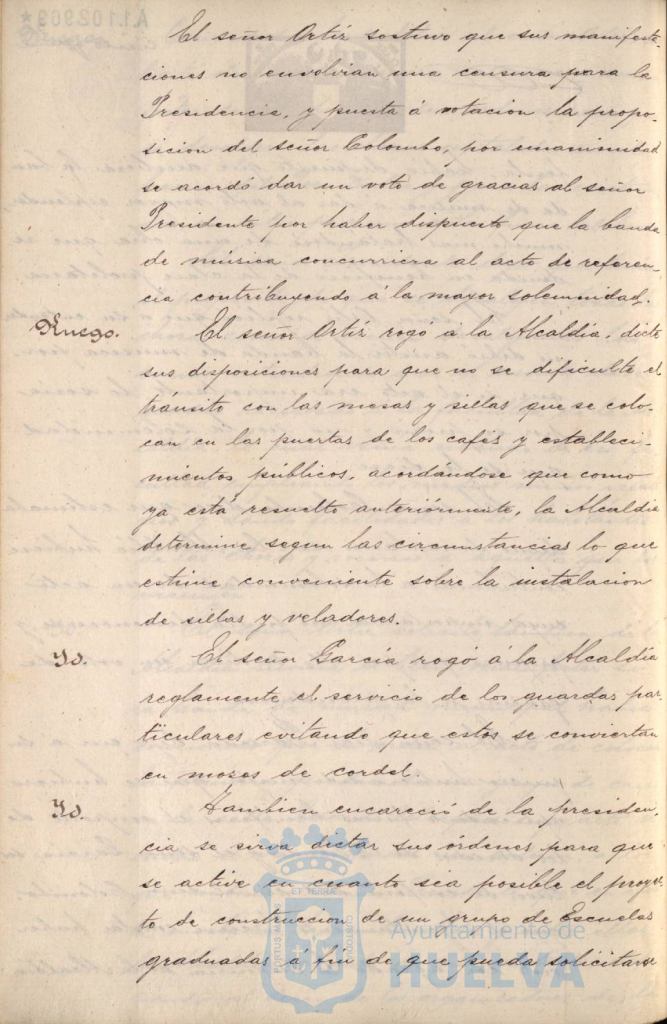 A.1.102.969*
El señor Ortíz sostuvo que sus manifesta-
ciones no envolvian una censura para la
Presidencia, y puesta á votacion la propo-
sicion del señor Colombo, por unanimidad
se acordó dar un voto de gracias al señor
Presidente por haber dispuesto que la banda
de música concurriera al acto de referen-
cia contribuyendo á la mayor solemnidad.
Ruego.
El señor Ortíz rogó á la Alcaldía, dicte
sus disposiciones para que no se dificulte el
tránsito con las mesas y sillas que se colo-
can en las puertas de los cafés y estableci-
mientos públicos, acordándose que como
ya está resuelto anteriórmente, la Alcaldía
determine segun las circunstancias lo que
estime conveniente sobre la instalacion
de sillas y veladores.
Yd.
El señor García rogó á la Alcaldía
reglamente el servicio de los guardas par-
ticulares evitando que estos se conviertan
en mozos de cordel.
Yd.
Tambien encareció de la presiden-
cia se sirva dictar sus órdenes para que
se active en cuanto sea posible el proyec-
to de construccion de un grupo de Escuelas
graduadas á fin de que pueda solicitarse
PORTUS MARIS ET TERRAE CUSTODIA
Ayuntamiento de
HUELVA